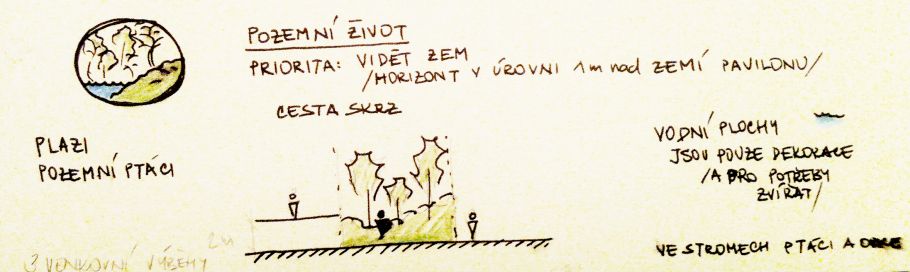 POZEMNÍ ŽIVOT
PRIORITA: VIDĚT ZEM
/HORIZONT V ÚROVNI 1m nad ZEMÍ PAVILONU/
CESTA SKRZ
PLAZI
POZEMNÍ PTÁCI
VODNÍ PLOCHY
JSOU POUZE DEKORACE
/A PRO POTŘEBY
ZVÍŘAT/
VE STROMECH PTÁCI A
3 VENKOVNÍ VÝBĚHY